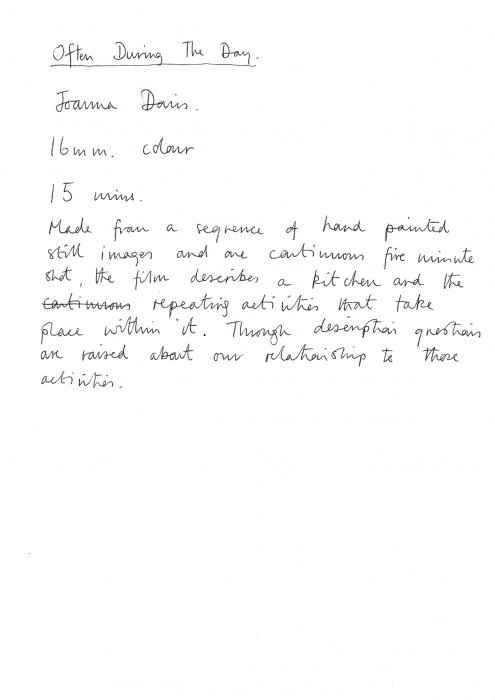 Often During The Day.
Joanna Davis.
16mm. colour
15 mins.
Made from a sequence of hand painted
still images and one continuous five minute
shot, the film describes a kitchen and the
continuous repeating activities that take
place within it. Through description questions
are raised about our relationship to those
activities.